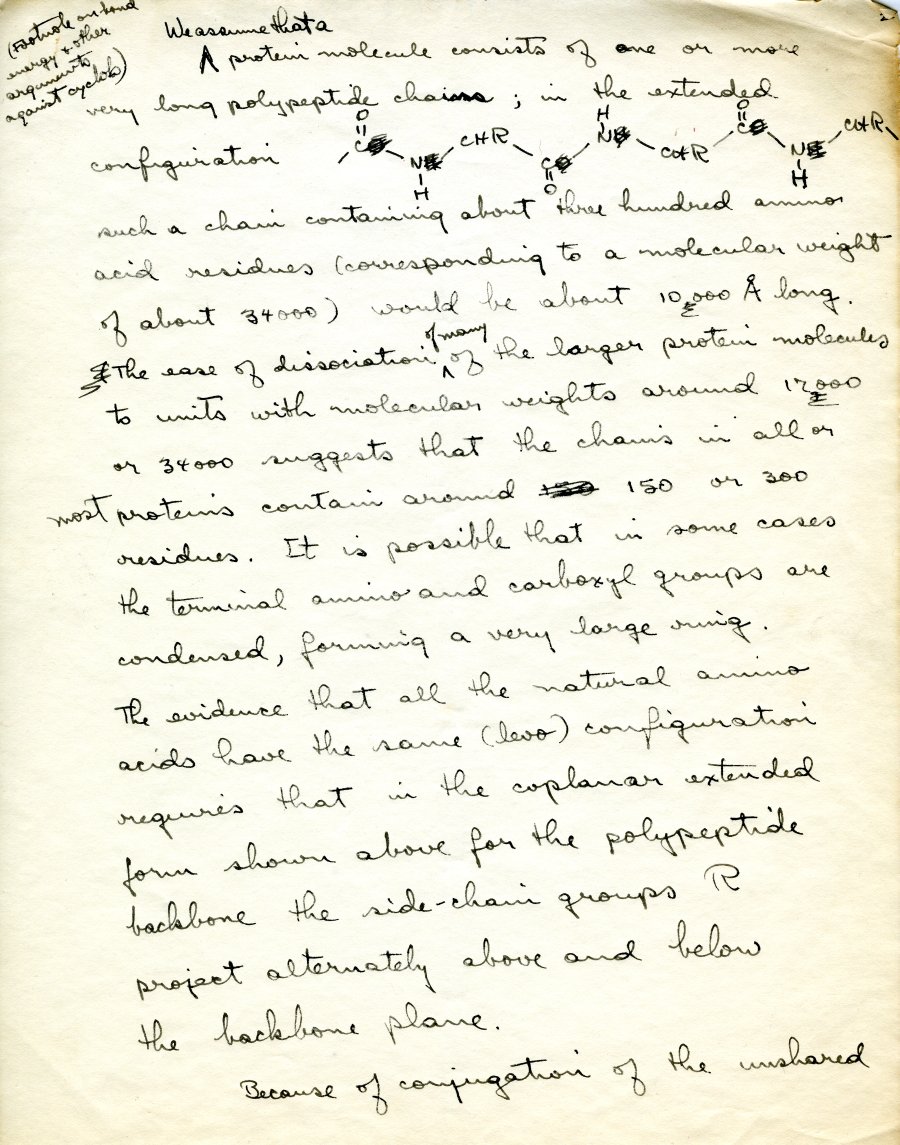 2
(Footnote on bond
energy & other
arguments
against cyclols)
We assume that a
A protein molecule consists of one or more
very long polypeptide chains ; in the extended
configuration
O C N H CHR C O H N CHR O C N H CHR
such a chain containing about three hundred amino
acid residues (corresponding to a molecular weight
of about 34000) would be about 10,000 Å long.
of many
The ease of dissociation of the larger protein molecules
to units with molecular weights around 17000
or 34000 suggests that the chains in all or
most proteins contain around 150 or 300
residues. It is possible that in some cases
the terminal amino and carboxyl groups are
condensed, forming a very large ring.
The evidence that all the natural amino
acids have the same (levo) configuration
requires that in the coplanar extended
form shown above for the polypeptide
backbone the side-chain groups R
project alternately above and below
the backbone plane.
Because of conjugation of the unshared